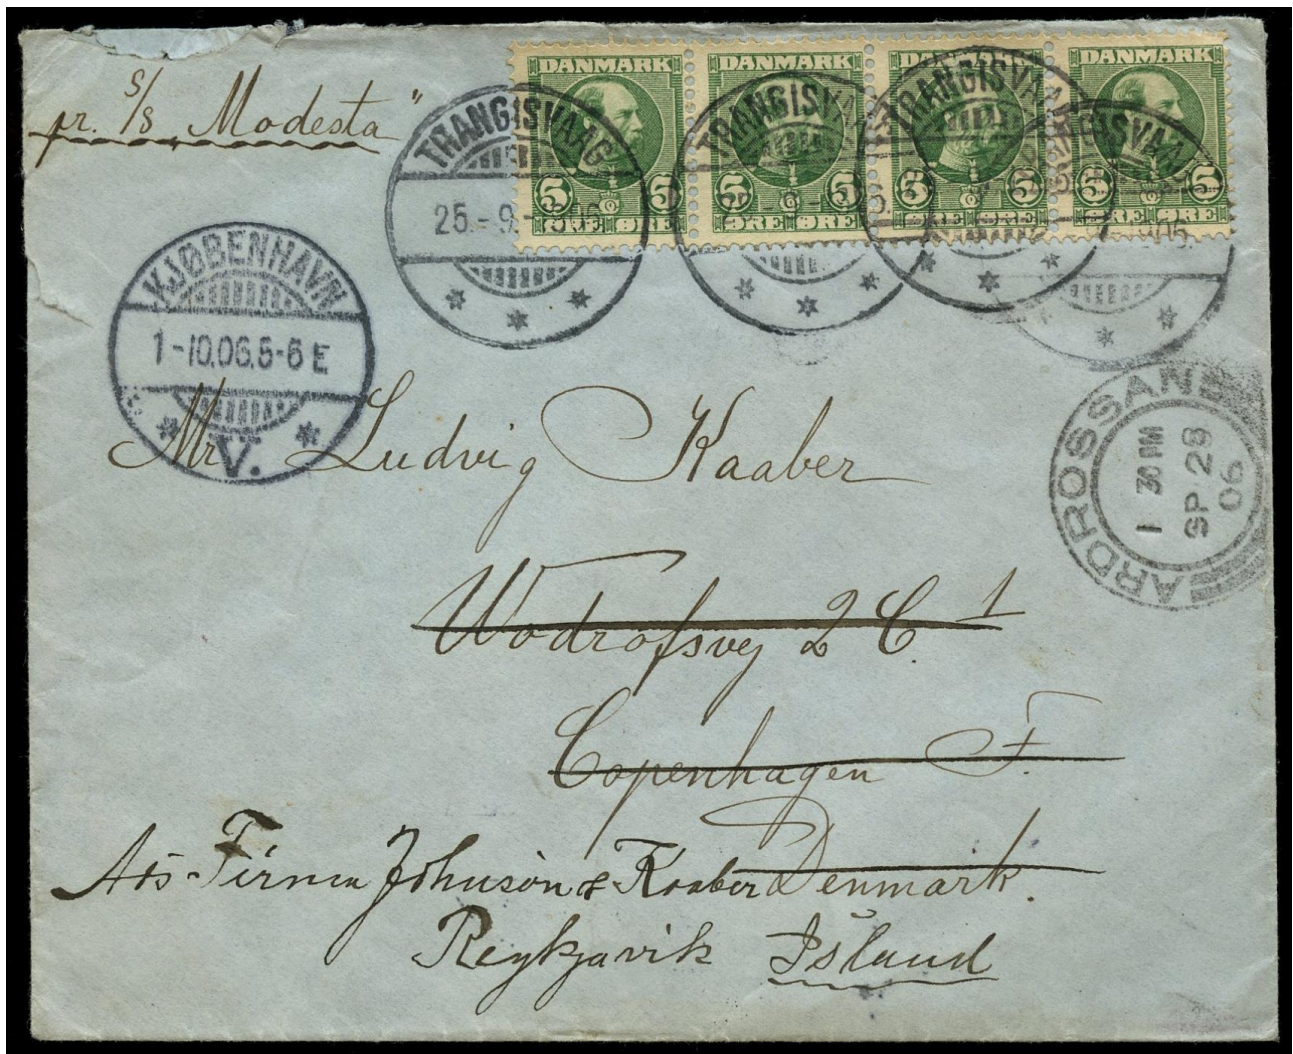 pr. S/S "Modesta"
DANMARK DANMARK DANMARK DANMARK
5 5 5 5 5 5 5 5
ØRE ØRE ØRE ØRE ØRE ØRE ØRE ØRE
TRANGISVAAG
25.-9.-
TRANGISVAA
TRANGISVAA
GISVAA
KJØBENHAVN
1-10.06.5-6 E
V.
ARDROSSAN
1 30 PM
SP 28
06
Mr Ludvig Kaaber
Wodrofsvej 2 C 1
Copenhagen F.
Denmark.
Firma Johnson & Kaaber
Reykjavik Island